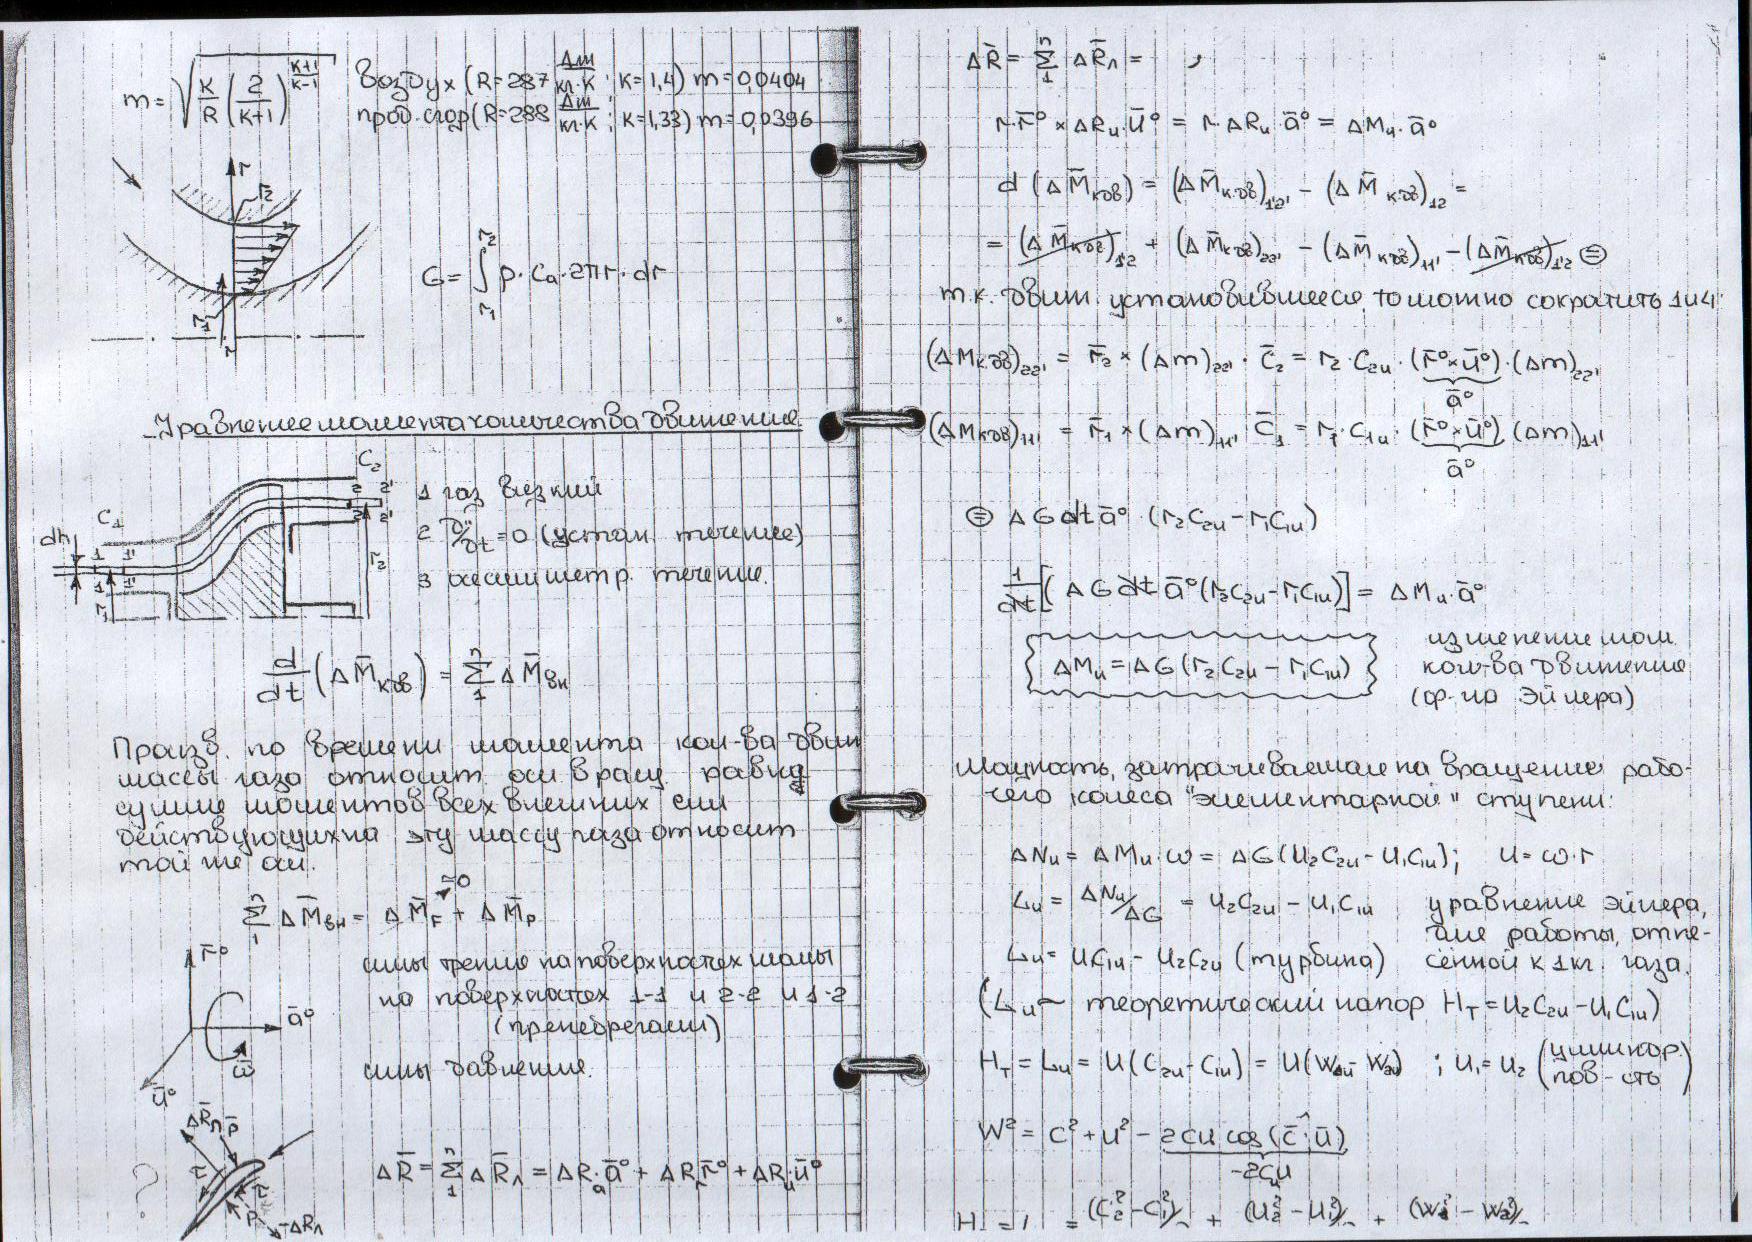 m = √( K/R (2/(K+1))^((K+1)/(K-1)) ) воздух (R=287 Дж/кг·К ; K=1,4) m=0,0404
прод. сгор (R=288 Дж/кг·К ; K=1,33) m=0,0396
r
r₂
G = ∫ r₁ r₂ ρ·Cₐ·2πr·dr
r₁
r
Уравнение момента количества движения.
C₂
C₁
2 2'
2 2'
dh
1 1'
1 1'
r₁
r₂
1 газ вязкий
2 D̈/∂t = 0 (устан. течение)
3 осесимметр. течение.
d/dt (ΔM̄к.дв) = Σ₁ⁿ ΔM̄вн
Произв. по времени момента кол-ва движ
массы газа относит. оси вращ. равна
сумме моментов всех внешних сил
действующих на эту массу газа относит
той же оси.
≈0
Σ₁ⁿ ΔM̄вн = ΔM̄F + ΔM̄p
r̄°
ā°
ω̄
ū°
силы трения на поверхностях массы
на поверхностях 1-1 и 2-2 и 1-2
(пренебрегаем)
силы давления.
ΔR̄л p̄
τ
τ
p
-ΔRл
?
ΔR̄ = Σ₁ⁿ ΔR̄л = ΔRₐ·ā° + ΔRr·r̄° + ΔRu·ū°
ΔR̄ = Σ₁ⁿ ΔR̄л = ,
r·r̄° × ΔRu·ū° = r·ΔRu·ā° = ΔMu·ā°
d (ΔM̄к.дв) = (ΔM̄к.дв)1'2' - (ΔM̄к.дв)12 =
= (ΔM̄к.дв)1'2 + (ΔM̄к.дв)22' - (ΔM̄к.дв)11' - (ΔM̄к.дв)1'2 ⊜
т.к. движ. установившееся, то можно сократить 1 и 4
(ΔMк.дв)22' = r̄₂ × (Δm)22' · C̄₂ = r₂·C₂u·(r̄°×ū°)·(Δm)22'
ā°
(ΔMк.дв)11' = r̄₁ × (Δm)11' C̄₁ = r₁·C₁u·(r̄°×ū°) (Δm)11'
ā°
⊜ ΔG dt ā° · (r₂C₂u - r₁C₁u)
1/dt [ΔG dt ā° (r₂C₂u - r₁C₁u)] = ΔMu·ā°
ΔMu = ΔG (r₂C₂u - r₁C₁u)
изменение мом.
кол-ва движения
(ф-ла Эйлера)
Мощность, затрачиваемая на вращение рабо-
чего колеса "элементарной" ступени:
ΔNu = ΔMu·ω = ΔG (U₂C₂u - U₁C₁u); U = ω·r
Lu = ΔNu/ΔG = U₂C₂u - U₁C₁u уравнение Эйлера,
для работы, отне-
Lu = U₁C₁u - U₂C₂u (турбина) сённой к 1 кг. газа.
(Lu ~ теоретический напор Hт = U₂C₂u - U₁C₁u)
Hт = Lu = U(C₂u - C₁u) = U(W₁u - W₂u) ; U₁ = U₂ (цилиндр. пов-сть)
W² = C² + U² - 2CU cos(C̄,^ū)
-2CuU
= (C₂² - C₁²)/ + (U₂² - U₁²)/ + (W₁² - W₂²)/